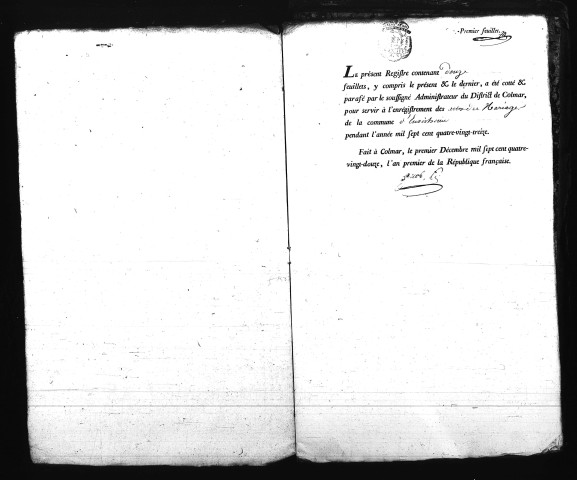 Premier feuillet.
LE préſent Regiſtre contenant douze
feuillets, y compris le préſent & le dernier, a été coté &
parafé par le ſouſſigné Adminiſtrateur du Diſtrict de Colmar,
pour ſervir à l'enrégiſtrement des Mariages
de la commune d'
pendant l'année mil ſept cent quatre-vingt-treize.
Fait à Colmar, le premier Décembre mil ſept cent quatre-
vingt-douze, l'an premier de la République françaiſe.